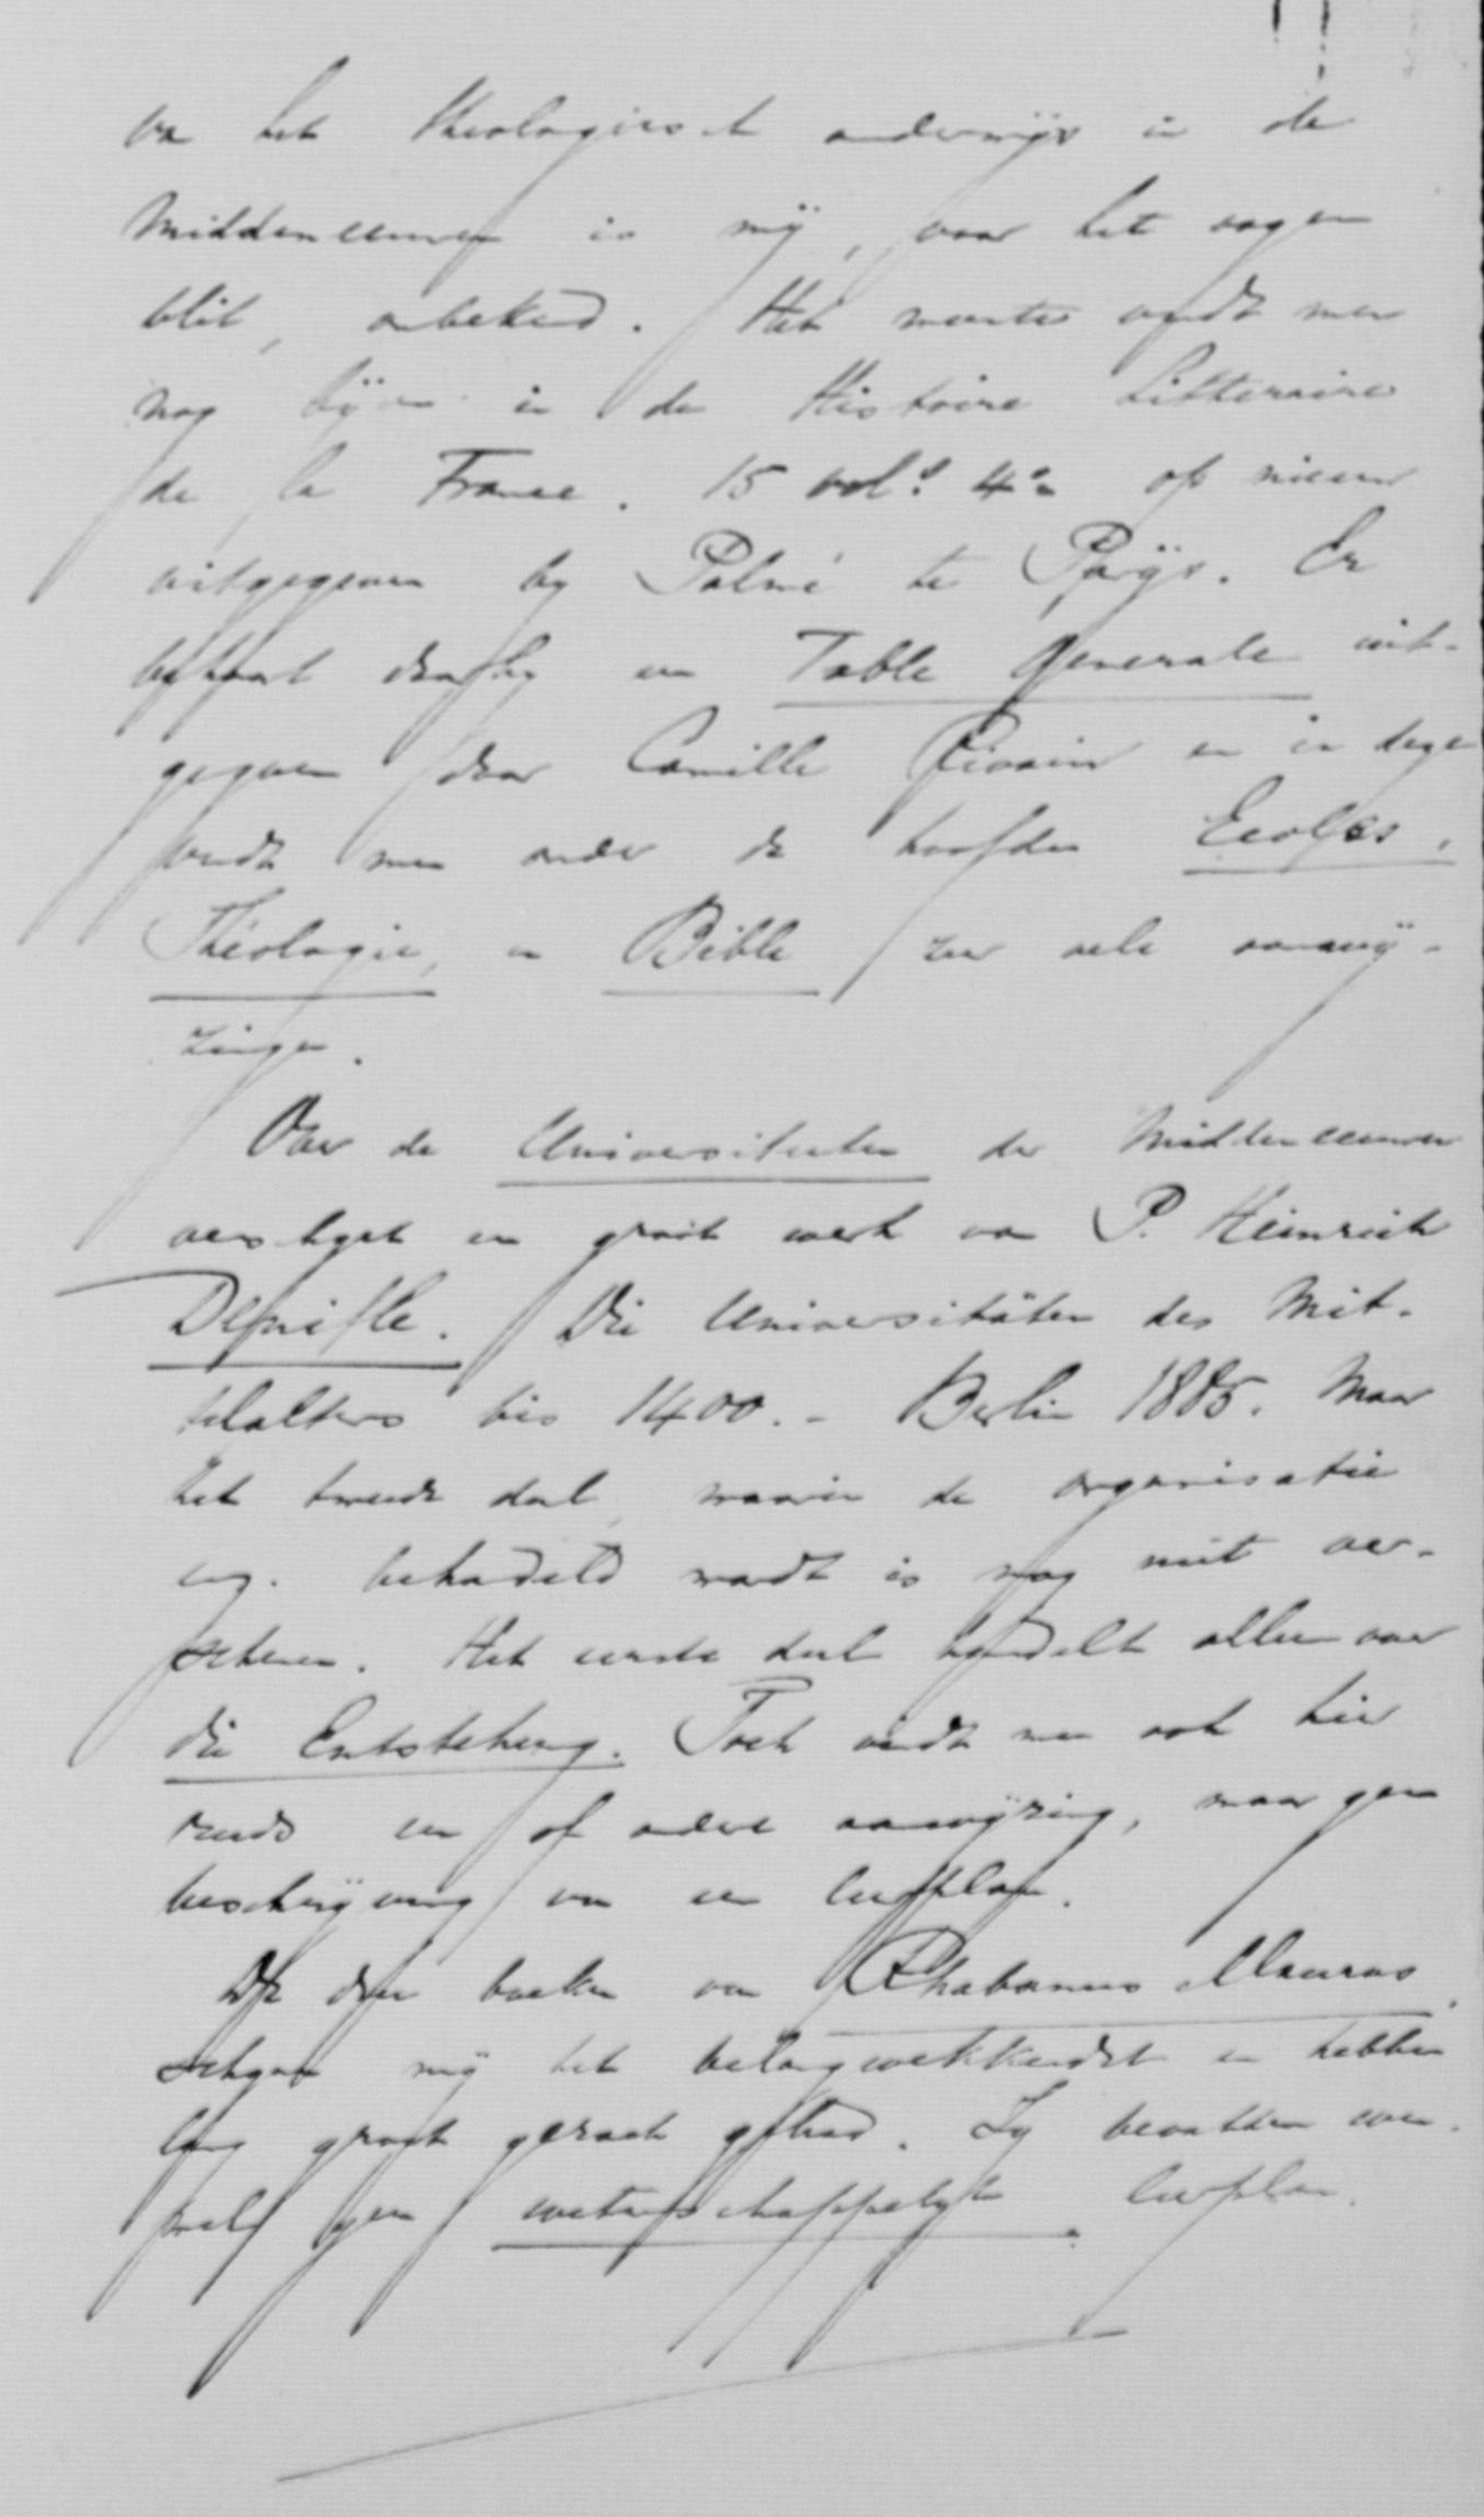 van het theologisch onderwijs in de
Middeneeuwen is mij, voor het oogen
blik, onbekend. Het meeste vindt men
nog bijeen in de Histoire Litteraire
de la France. 15 vols 4o op nieuw
uitgegeven by Palmé te Parijs. Er
bestaat daarby een Table Generale uit-
gegeven door Camille Rivain en in deze
vindt men onder de hoofden Ecoles,
Théologie, en Bible zeer vele aanwij-
zingen.
Over de Universiteiten der Middeneeuwen
verschynt een groot werk van P. Heinrich
Denifle. Die Universitäten des Mit-
telalters bis 1400. - Berlin 1885. Maar
het tweede deel, waarin de organisatie
enz. behandeld wordt is nog niet ver-
schenen. Het eerste deel handelt alleen over
die Entstehung. Toch vindt men ook hier
reeds een of andere aanwijzing, maar geen
beschrijving van een leerplan.
De drie boeken van Rhabanus Maurus
schynen mij het belangwekkendst en hebben
lang groot gezach gehad. Zy bevatten even
wel geen wetenschappelyk leerplan.